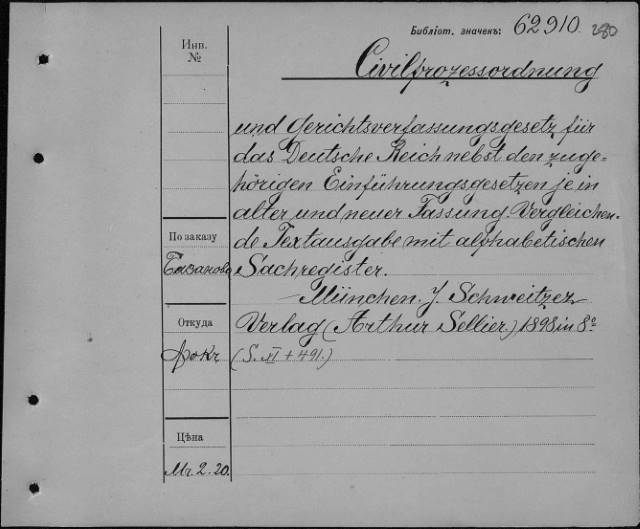 Библіот. значекъ: 62910. 280
Инв.
№
Civilprozessordnung
und Gerichtsverfassungsgesetz für
das Deutsche Reich nebst den zuge-
hörigen Einführungsgesetzen je in
alter und neuer Fassung. Vergleichen-
de Textausgabe mit alphabetischen
Sachregister.
München. J. Schweitzer
Verlag (Arthur Sellier) 1898 in 8º
(S. XI + 491.)
По заказу
Базанова
Откуда
Фокъ
Цѣна
Mr. 2. 20.